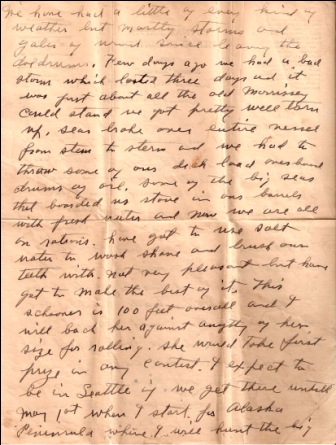 We have had a little of every kind of
weather but mostly storms and
gales of wind since leaving the
doldrums. Few days ago we had a bad
storm which lasted three days and it
was just about all the old Morrissey
could stand we got pretty well torn
up, seas broke over entire vessel
from stem to stern and we had to
throw some of our deck load overboard
drums of oil. Some of the big seas
that boarded us stove in our barrels
with fresh water and now we are all
on rations. have got to use salt
water to wash shave and brush our
teeth with. not very pleasant but have
got to make the best of it. This
schooner is 100 feet overall and I
will back her against anything of her
size for rolling. She would take first
prize in any contest. I expect to
be in Seattle if we get there until
May 1st when I start for Alaska
Peninsula where I will hunt the big